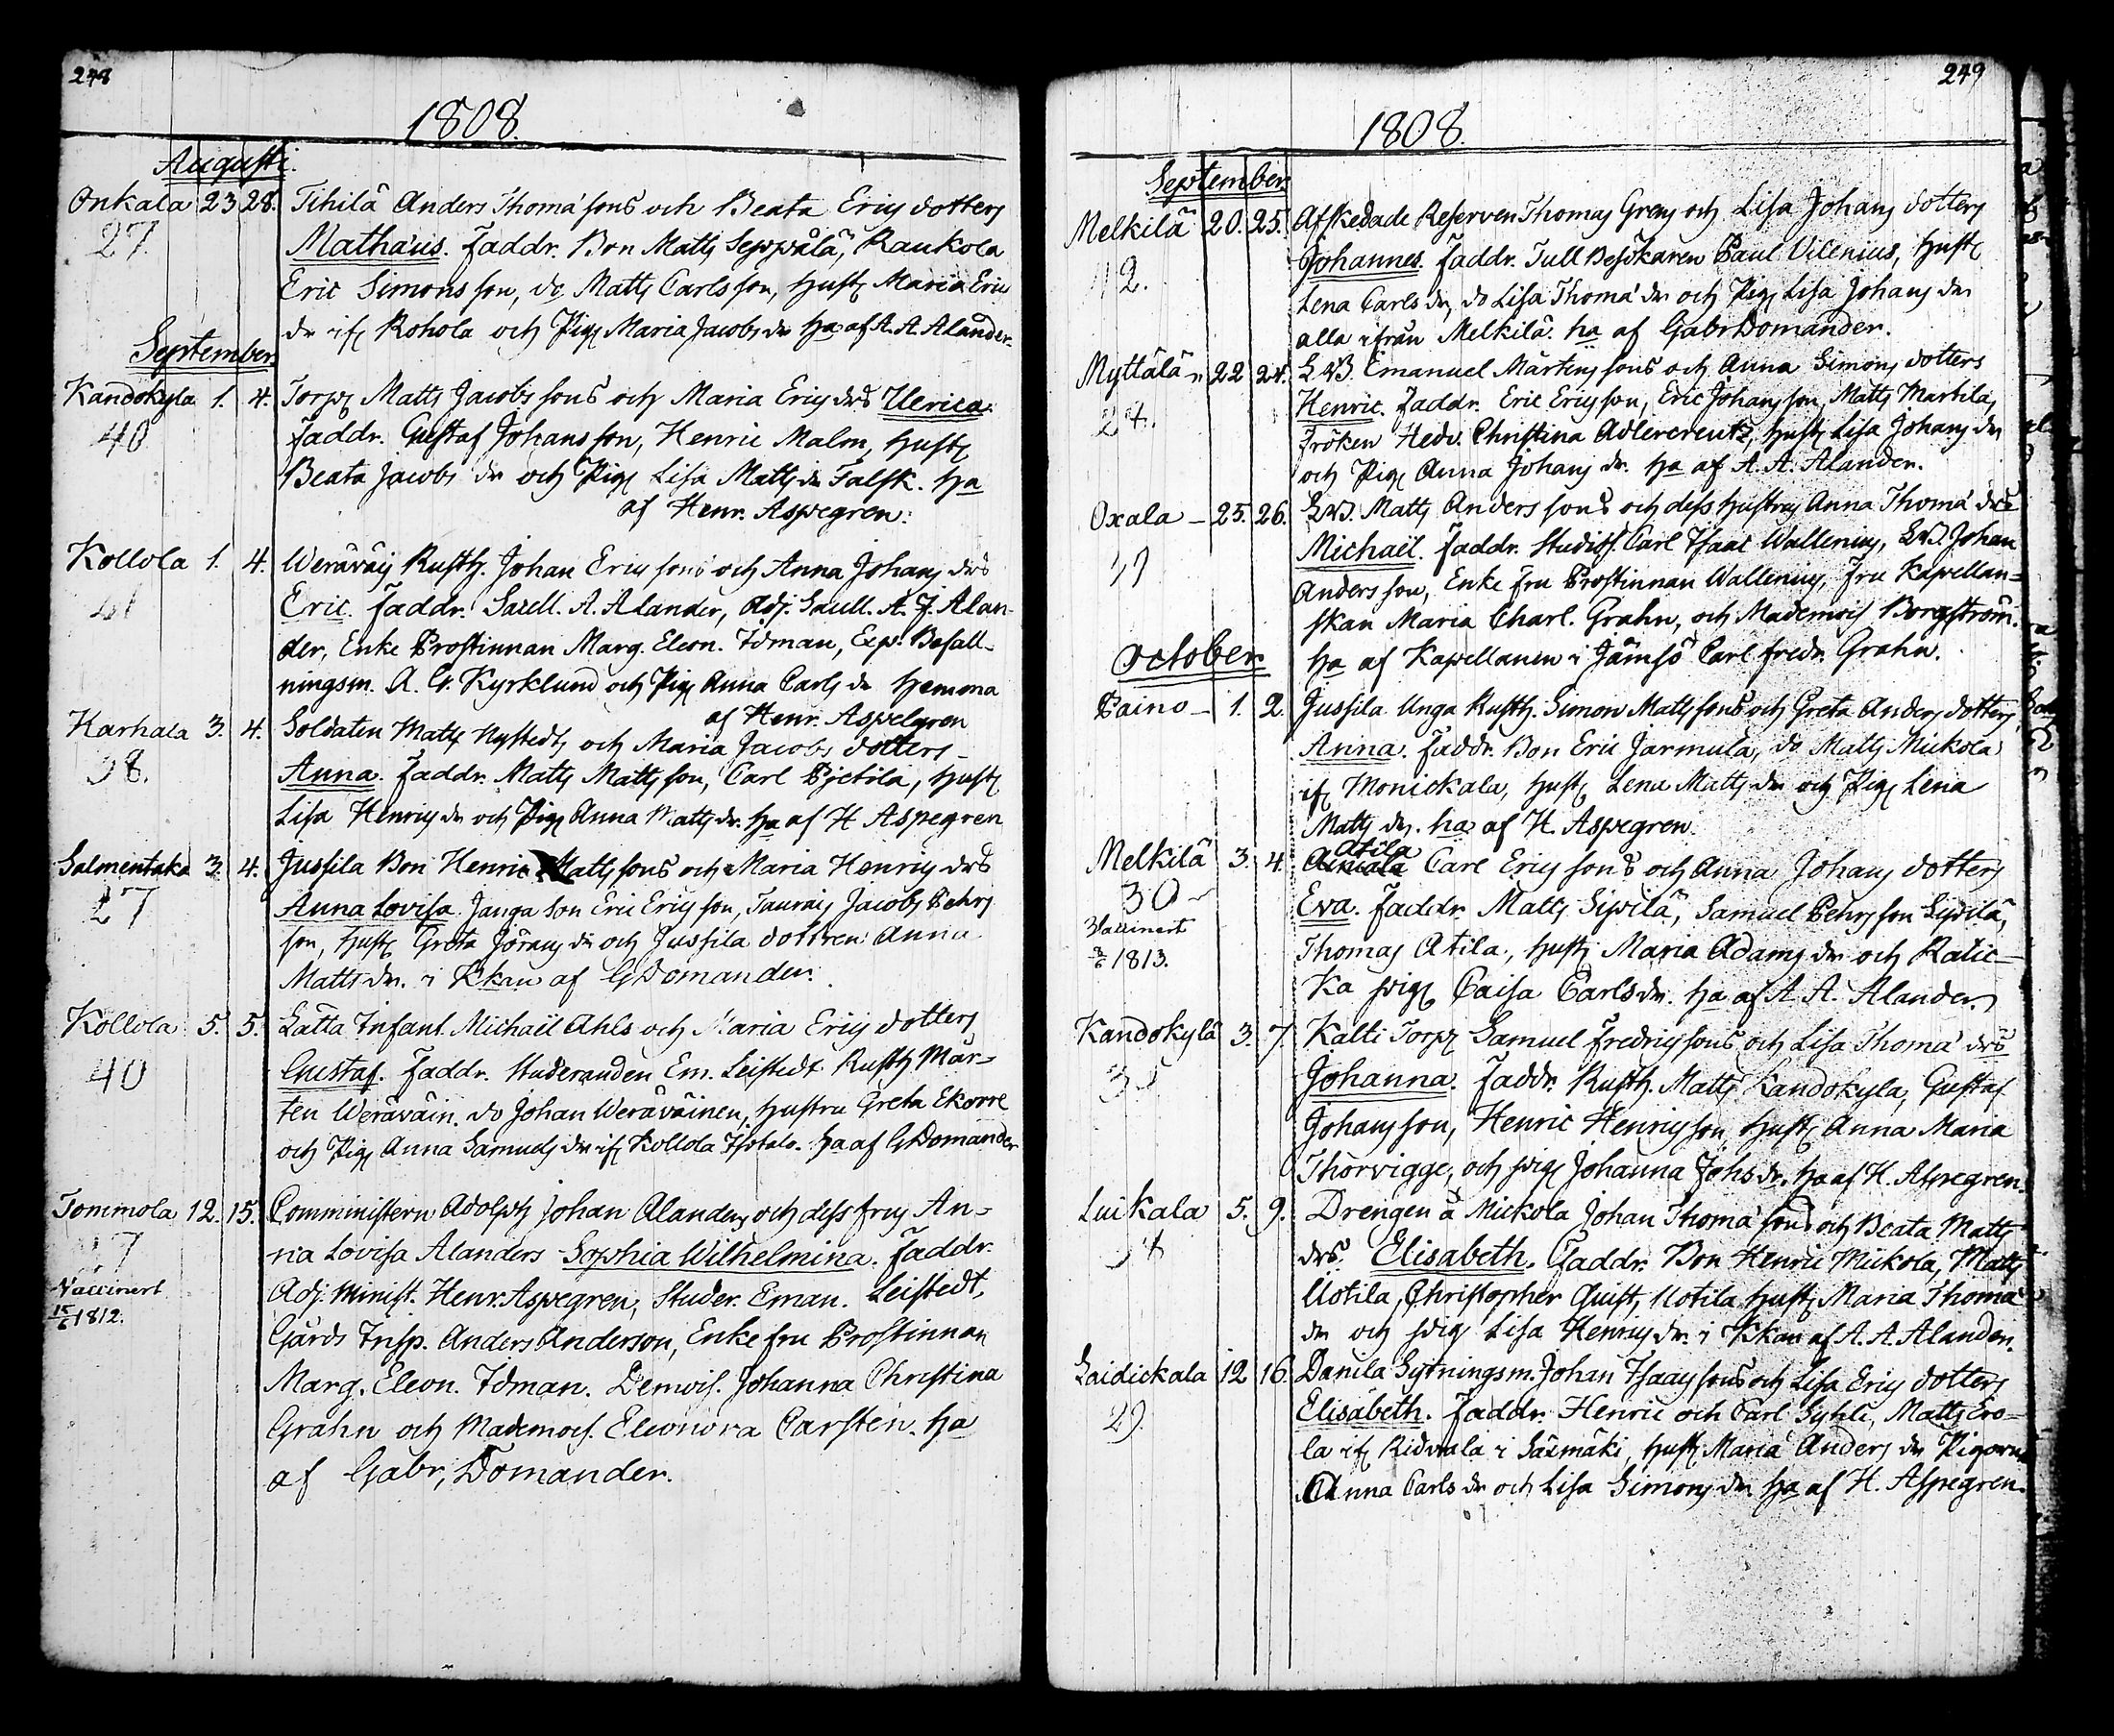 248
1808.
Augusti.
Onkala 23 28. Tihilä Anders Thomæ sons och Beata Erics dotters
27. Mathæus. Faddr. Bon Matts Seppälä, Raukola
Eric Simons son, do Matts Carls son, Hust. Maria Erics
dr if. Rohola och Pig. Maria Jacobs dr ha af A. A. Alander.
September.
Kandokyla 1. 4. Torp. Matts Jacobs sons och Maria Erics drs Ulrica.
40 Faddr. Gustaf Johans son, Henric Malm, Hust.
Beata Jacobs dr och Pig. Lisa Matts dr Falsk. ha
af Henr. Aspegren.
Kollola 1. 4. Weräväis Rusth. Johan Erics sons och Anna Johans drs
41 Eric. Faddr. Sacell. A. Alander, Adj. Sacell. A. J. Alan-
der, Enke Prostinnan Marg. Eleon. Idman, Exp. Befall-
ningsm. A. G. Kyrklund och Pig. Anna Carls dr hemma
af Henr. Aspelgren
Harhala 3. 4. Soldaten Matts Nystedts och Maria Jacobs dotters
38. Anna. Faddr. Matts Matts son, Carl Pietila, Hust.
Lisa Henrics dr och Pig. Anna Matts dr. ha af H Aspegren
Salmentaka 3. 4. Jussila Bon Henric Matts sons och Maria Henrics drs
27 Anna Lovisa. Janga Son Eric Erics son, Taurais Jacobs Pehrs
son, Hust. Greta Jörans dr och Jussila dottren Anna
Matts dr. i Kkan af G Domander.
Kollola 5. 5. Lätta Infant. Michaël Ahls och Maria Erics dotters
40 Gustaf. Faddr. Studeranden Em. Leistedt Rusth Mår-
ten Weräväin. do Johan Weräväinen, Hustru Greta Ekorre
och Pig. Anna Samuels dr if. Kollola Isotalo. ha af G Domander
Tommola 12. 15. Comministern Adolph Johan Alanders och dess frus An-
27 na Lovisa Alanders Sophia Wilhelmina. Faddr.
Vaccinert Adj. Minist. Henr. Aspegren, Studer. Eman. Leistedt,
15/6 1812. Gårds Insp. Anders Anderson, Enke fru Prostinnan
Marg. Eleon. Idman. Demois. Johanna Christina
Grahn och Mademois. Eleonora Carstén. ha
af Gabr, Domander.
249
1808.
September.
Melkilä 20. 25. Afskedade Reserven Thomas Grens och Lisa Johans dotters
Johannes. Faddr. Tull Besökaren Paul Vilenius, Hust.
Lena Carls dr, do Lisa Thomæ dr och Pig. Lisa Johans dr
alla ifrån Melkilä. ha af Gabr Domander.
Myttälä 22 24. L.B. Emanuel Mårtins sons och Anna Simons dotters
24. Henric. Faddr. Eric Erics son, Eric Johans son, Matts Martila,
Fröken Hedv. Christina Adlercreutz, Hust. Lisa Johans dr
och Pig. Anna Johans dr. ha af A. A. Alander.
Oxala 25. 26. L.B. Matts Anders sons och dess Hustrus Anna Thomæ drs
Michaël. Faddr. Studios. Carl Isaac Wallenius, L.B. Johan
Anders son, Enke Fru Prostinnan Wallenius, Fru Kapellan-
skan Maria Charl. Grahn, och Mademois Borgström.
ha af Kapellanen i Jämsö Carl Fredr. Grahn.
October
Paino 1. 2. Jussila Unga Rusth. Simon Matts sons och Greta Anders dotters
Anna. Faddr. Bon Eric Jarmula, do Matts Mickola
if. Monickala, Hust. Lena Matts dr och Pig. Lena
Matts dr. ha af H. Aspegren.
Melkilä 3. 4. Atila Carl Erics sons och Anna Johans dotters
30 Eva. Faddr. Matts Sipilä, Samuel Pehrs son Sipilä,
Vaccinert Thomas Atila, Hust. Maria Adams dr och Ratic-
1813. ka pig. Caisa Carls dr. ha af A. A. Alander.
Kandokylä 3. 7. Kalti Torp. Samuel Fredrics sons och Lisa Thomæ drs
35 Johanna. Faddr. Rusth. Matts Kandokyla, Gustaf
Johans son, Henric Henrics son, Hust. Anna Maria
Thorvigge, och pig. Johanna Johs dr. ha af H. Aspegren.
Luikala 5. 9. Drengen å Mickola Johan Thomæ sons och Beata Matts
drs. Elisabeth. Faddr. Bon Henric Mickola, Matts
Uotila, Christopher Quist, Uotila Hust. Maria Thomæ
dr och pig. Lisa Henrics dr. i Kkan af A. A. Alander.
Laidickala 12 16. Danila Sytningsm. Johan Isaacs sons och Lisa Erics dotters
29. Elisabeth. Faddr. Henric och Carl Syhli, Matts Ero-
la if. Ridvala i Säxmäki, Hust. Maria Anders dr Pigorne
Anna Carls dr och Lisa Simons dr ha af H. Aspegren.